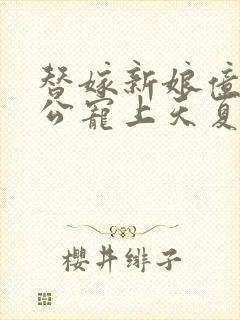 替嫁新娘億
公寵上天夏
櫻井緋子